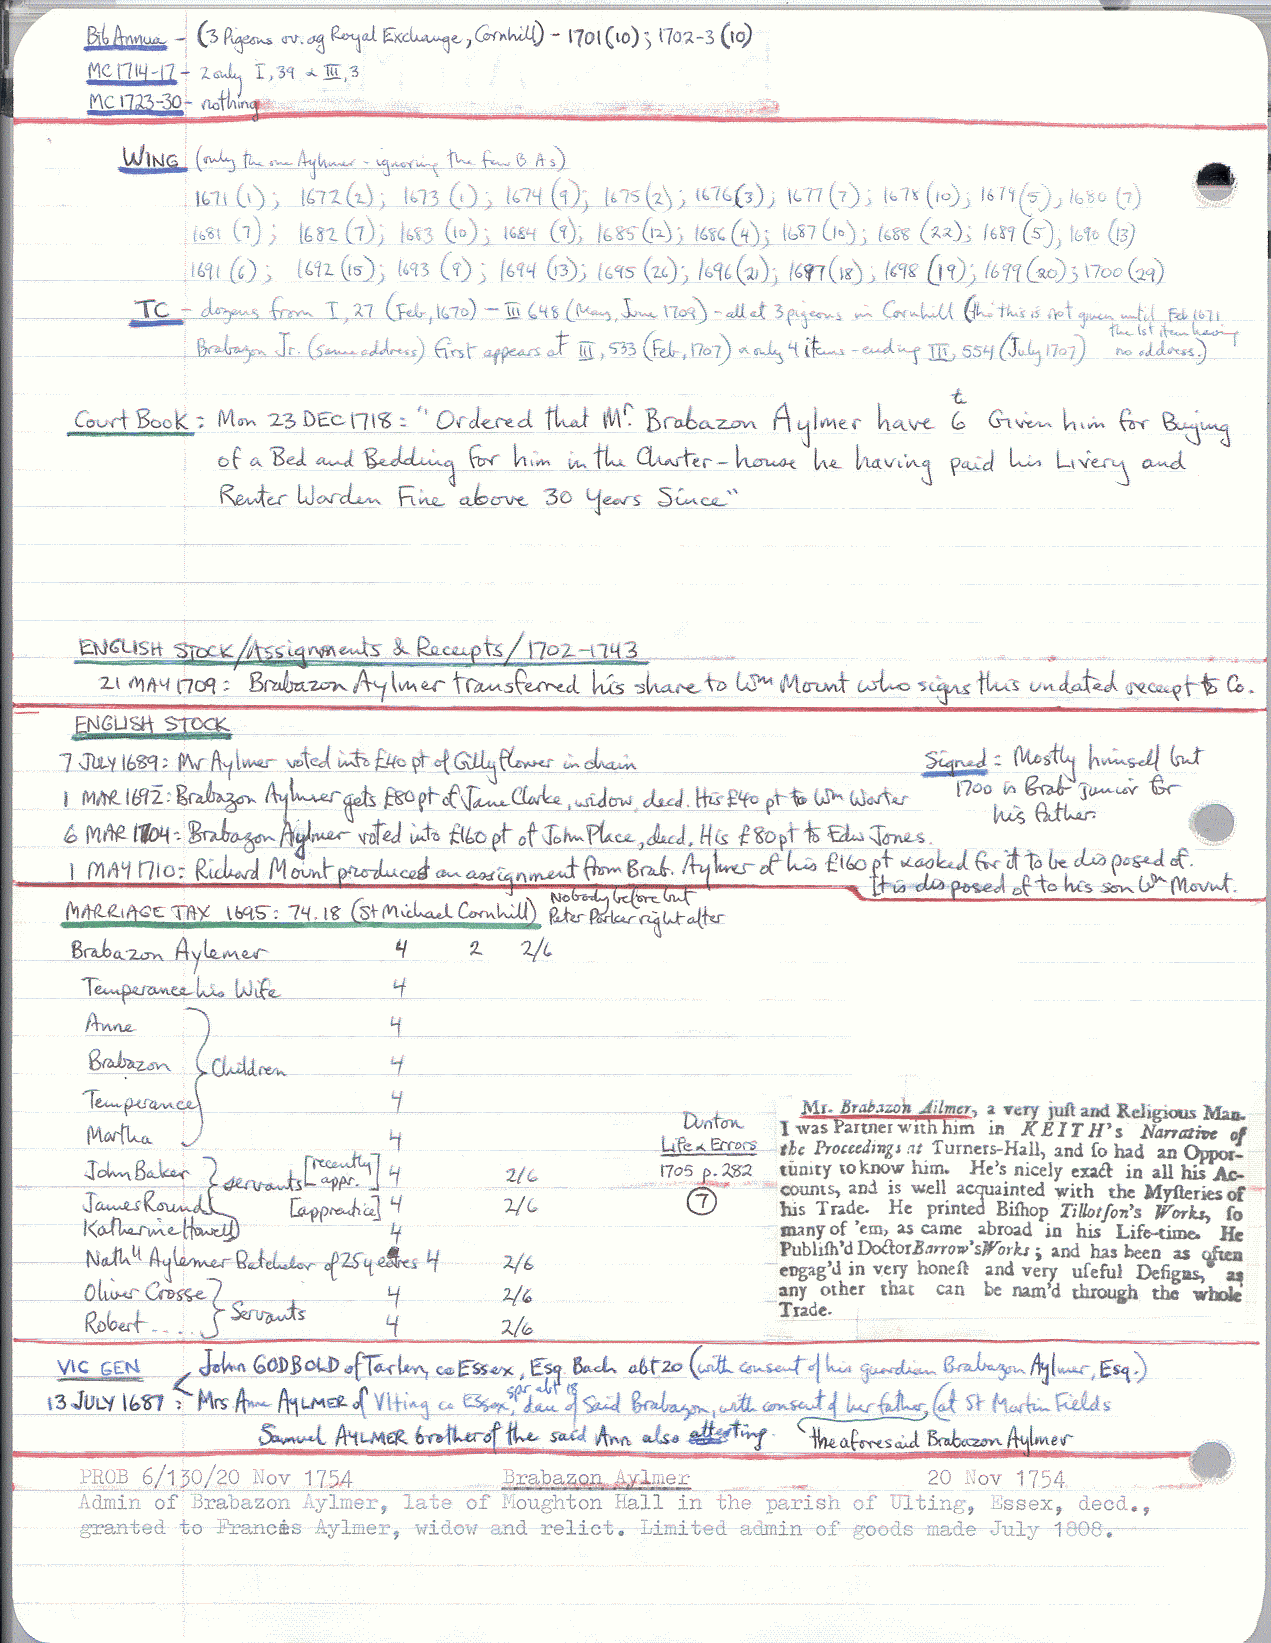 Bib Annua - (3 Pigeons ov. ag Royal Exchange, Cornhill) - 1701(10); 1702-3 (10)
MC 1714-17 - 2 only I, 39 & III, 3
MC 1723-30 - nothing
WING (only the one Aylmer - ignoring the few B As)
1671 (1); 1672 (2); 1673 (1); 1674 (9); 1675 (2); 1676 (3); 1677 (7); 1678 (10); 1679 (5), 1680 (7)
1681 (7); 1682 (7); 1683 (10); 1684 (9); 1685 (12); 1686 (4); 1687 (10); 1688 (22); 1689 (5), 1690 (13)
1691 (6); 1692 (15); 1693 (9); 1694 (13); 1695 (26); 1696 (21); 1697 (18); 1698 (19); 1699 (20); 1700 (29)
TC - dozens from I, 27 (Feb, 1670) - III 648 (May, June 1709) - all at 3 pigeons in Cornhill (tho this is not given until Feb 1671
the 1st item having
Brabazon Jr. (same address) first appears at III, 533 (Feb, 1707) & only 4 items - ending III, 554 (July 1707) no address.)
Court Book: Mon 23 DEC 1718: "Ordered that Mr. Brabazon Aylmer have 6 Given him for Buying
of a Bed and Bedding for him in the Charter-house he having paid his Livery and
Renter Warden Fine above 30 Years Since"
ENGLISH STOCK/Assignments & Receipts/1702-1743
21 MAY 1709: Brabazon Aylmer transferred his share to Wm Mount who signs this undated receipt to Co.
ENGLISH STOCK
7 JULY 1689: Mr Aylmer voted into £40 pt of Gillyflower in chain
Signed: Mostly himself but
1 MAR 1692: Brabazon Aylmer gets £80 pt of Jane Clarke, widow, decd. His £40 pt to Wm Warter
1700 is Brab junior for
his father.
6 MAR 1704: Brabazon Aylmer voted into £160 pt of John Place, decd. His £80 pt to Edw Jones.
1 MAY 1710: Richard Mount produced an assignment from Brab. Aylmer of his £160 pt & asked for it to be disposed of.
It is disposed of to his son Wm Mount.
MARRIAGE TAX 1695: 74.18 (St Michael Cornhill) Nobody before but
Peter Parker right after
Brabazon Aylemer 4 2 2/6
Temperance his Wife 4
Anne 4
Brabazon } Children 4
Temperance 4
Martha 4
John Baker } servants [recently appr.] 4 2/6
James Round [apprentice] 4 2/6
Katherine Howell 4
Nathll Aylemer Batchelor of 25 yeares 4 2/6
Oliver Crosse } Servants 4 2/6
Robert ..... 4 2/6
Dunton
Life & Errors
1705 p. 282
7
Mr. Brabazon Ailmer, a very juſt and Religious Man.
I was Partner with him in KEITH's Narrative of
the Proceedings at Turners-Hall, and ſo had an Oppor-
tunity to know him. He's nicely exact in all his Ac-
counts, and is well acquainted with the Myſteries of
his Trade. He printed Biſhop Tillotſon's Works, ſo
many of 'em, as came abroad in his Life-time. He
Publiſh'd Doctor Barrow's Works; and has been as often
engag'd in very honeſt and very uſeful Deſigns, as
any other that can be nam'd through the whole
Trade.
VIC GEN John GODBOLD of Tarlen, co Essex, Esq Bach abt 20 (with consent of his guardian Brabazon Aylmer, Esq.)
spr abt 18
13 JULY 1687: Mrs Anne AYLMER of Vlting co Essex, dau of Said Brabazon, with consent of her father, (at St Martin Fields
Samuel AYLMER brother of the said Ann also attesting. the aforesaid Brabazon Aylmer
PROB 6/130/20 Nov 1754 Brabazon Aylmer 20 Nov 1754
Admin of Brabazon Aylmer, late of Moughton Hall in the parish of Ulting, Essex, decd.,
granted to Frances Aylmer, widow and relict. Limited admin of goods made July 1808.